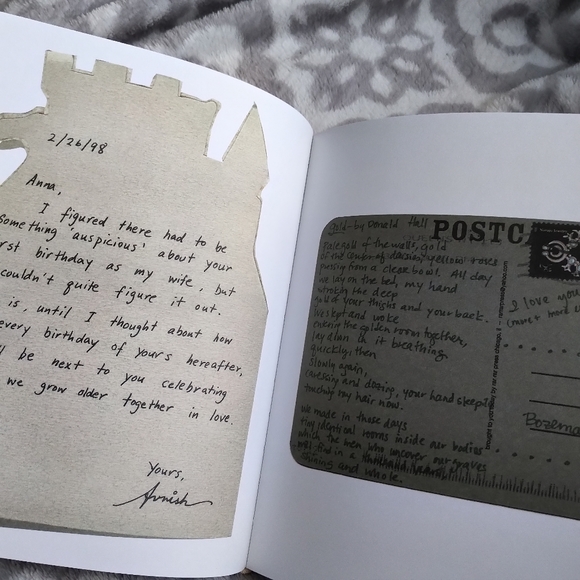 2/26/98
Anna,
I figured there had to be
something 'auspicious' about your
birthday as my wife, but
couldn't quite figure it out.
is, until I thought about how
every birthday of yours hereafter,
be next to you celebrating
we grow older together in love.
Yours,
Avnish
Gold-by Donald Hall
POSTC
Pale gold of the walls, gold
of the centers of daisies, yellow roses
pressing from a clear bowl. All day
we lay on the bed, my hand
stroking the deep
gold of your thighs and your back.
We slept and woke
entering the golden room together,
lay down in it breathing
quickly, then
slowly again,
caressing and dozing, your hand sleepily
touching my hair now.
We made in those days
tiny identical rooms inside our bodies
which the men who uncover our graves
will find in a
shining and whole.
I love you
Bozema